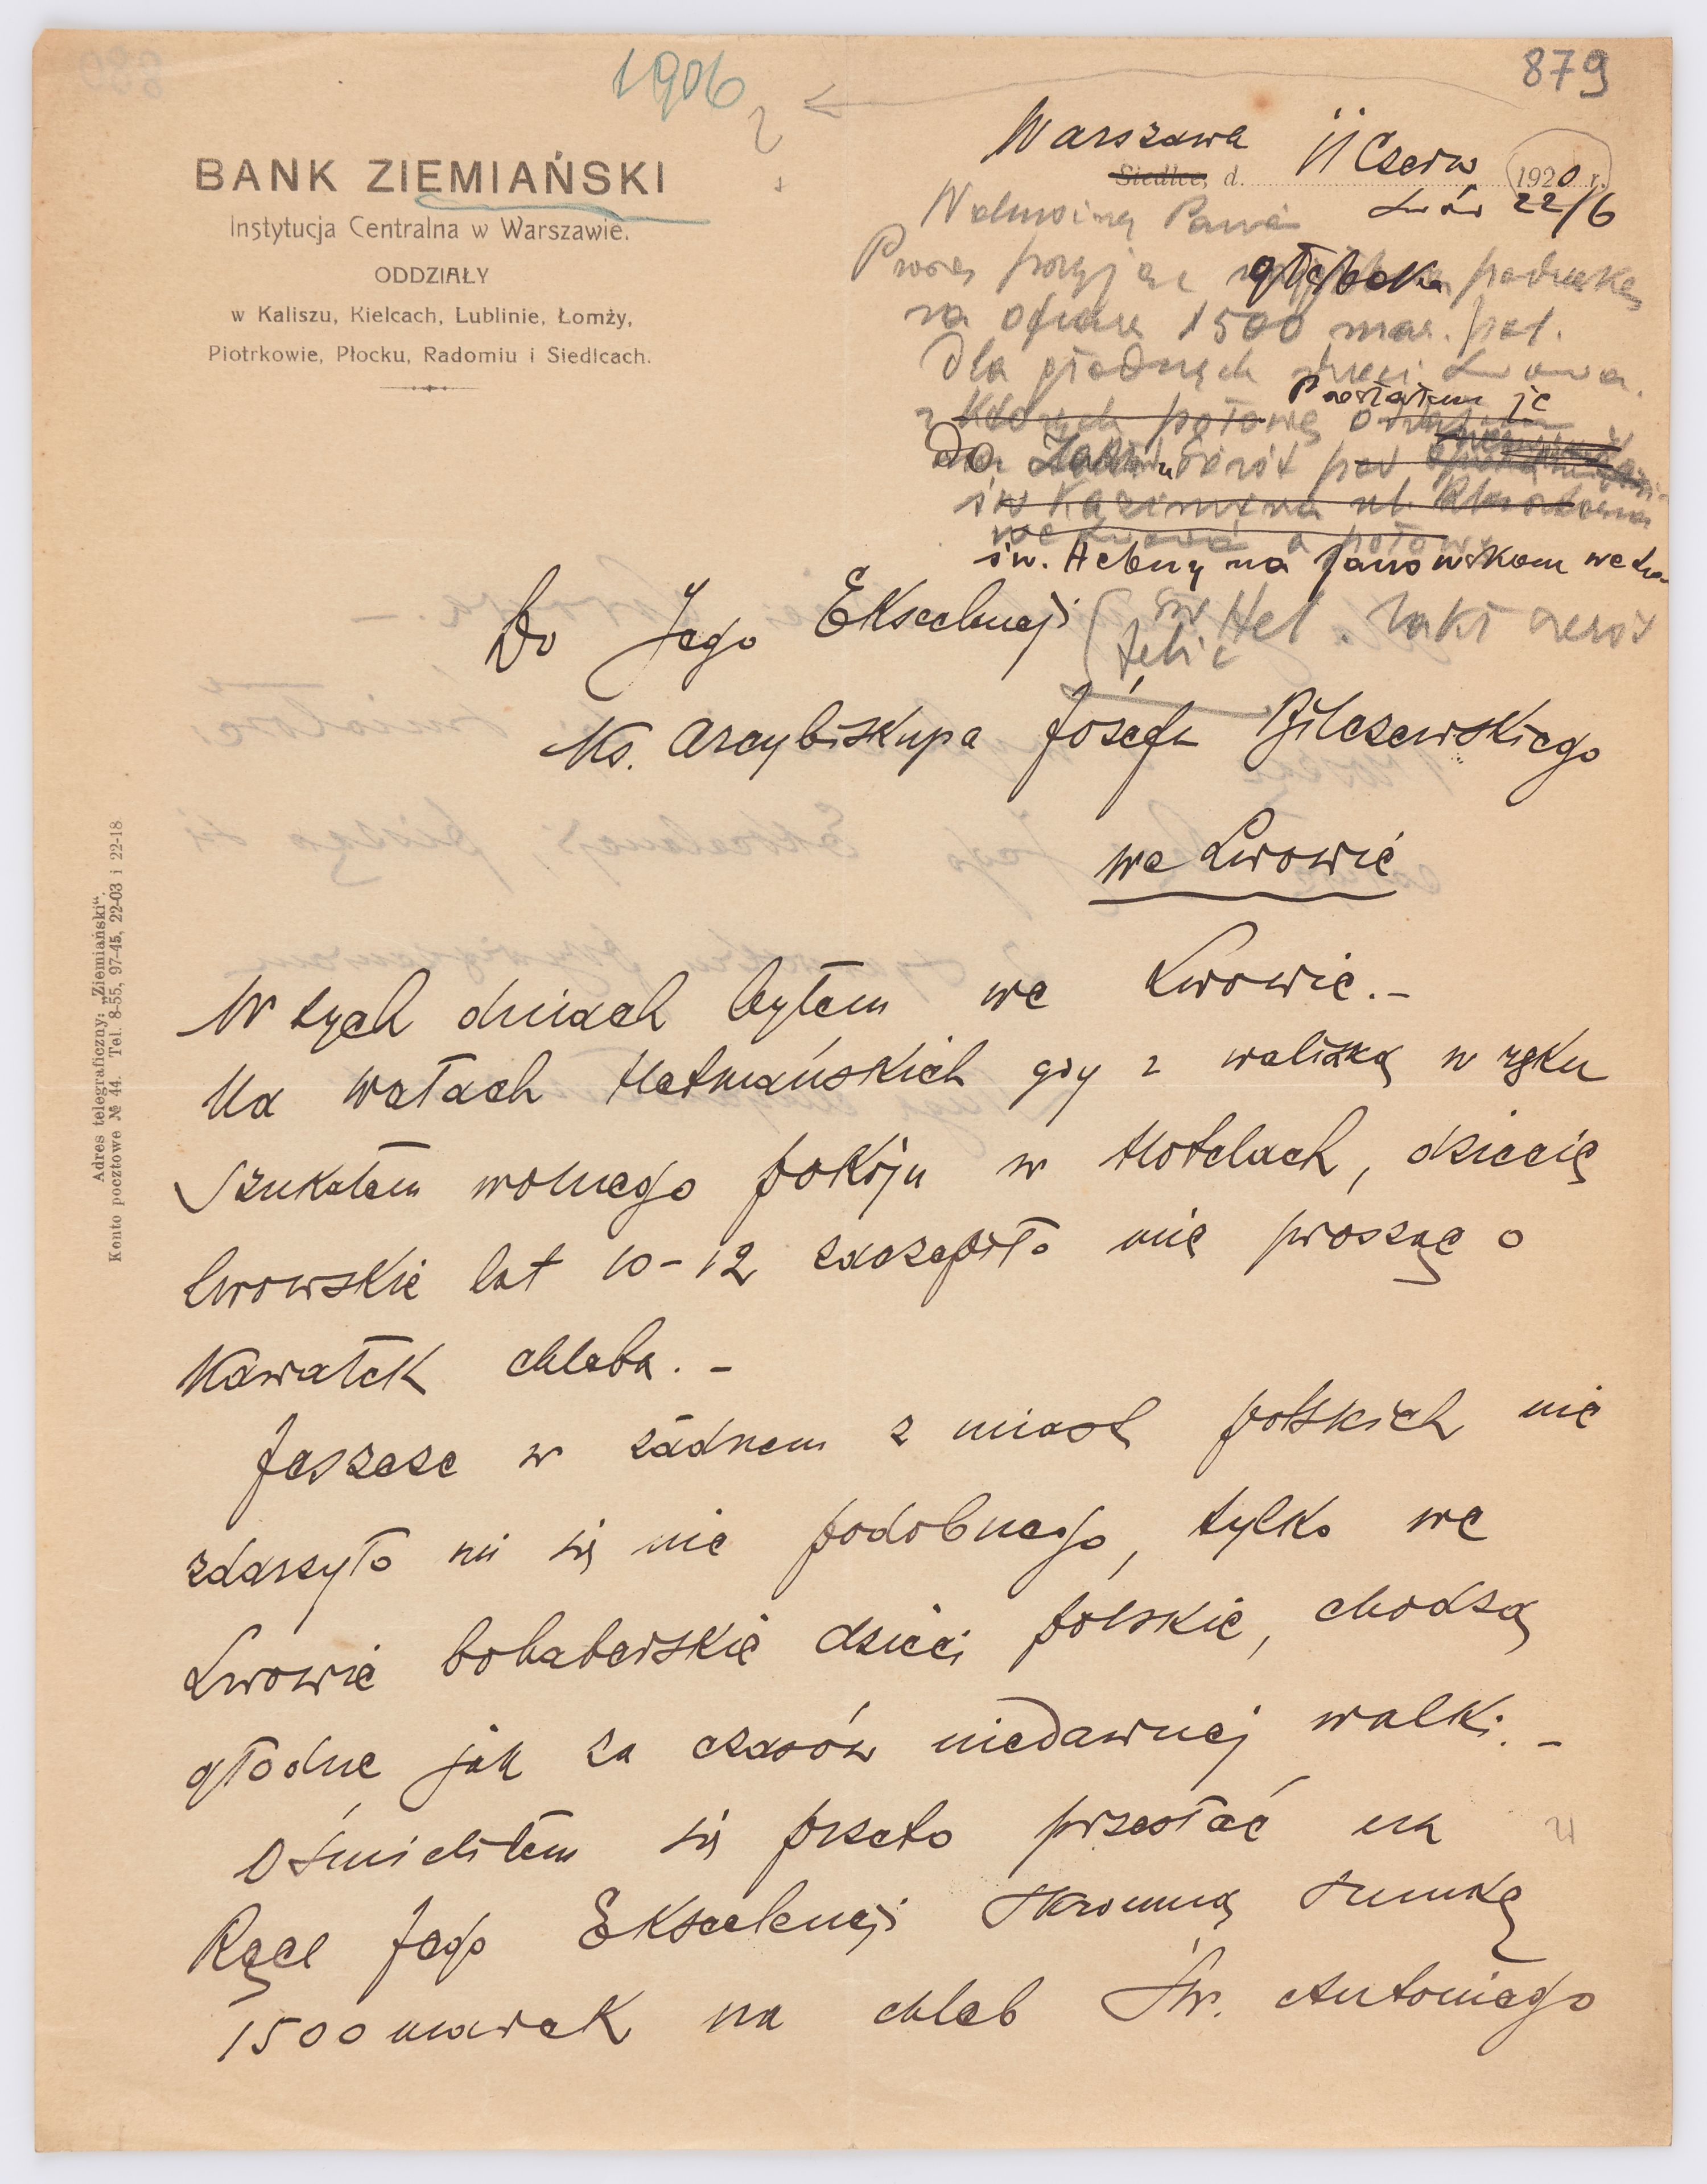 1906
879
BANK ZIEMIAŃSKI
Instytucja Centralna w Warszawie.
ODDZIAŁY
w Kaliszu, Kielcach, Lublinie, Łomży,
Piotrkowie, Płocku, Radomiu i Siedlcach.
Warszawa 11 Czerw
Siedlce, d. 1920 r.
Lwów 22/6
Proszę przyjąć głęboką podziękę
za ofiarę 1500 mar. pol.
Dla głodnych dzieci Lwowa.
Posłałem je
z których połowę
Do Zakł. sierót pod
św Kazimierza ul.
św. Heleny na Janowskom we Lwo
św Hel. Zakł sierót
Do Jego Ekscelencji
Ks. Arcybiskupa Józefa Bilczewskiego
we Lwowie
Adres telegraficzny: „Ziemiański“.
Konto pocztowe № 44. Tel. 8-55, 97-45, 22-03 i 22-18
W tych dniach byłem we Lwowie.-
Na Wałach Hetmańskich gdy z walizką w ręku
szukałem wolnego pokoju w Hotelach, dziecię
lwowskie lat 10-12 zaczepiło mię prosząc o
Kawałek chleba.-
Jeszcze w żadnem z miast polskich nie
zdarzyło mi się nic podobnego, tylko we
Lwowie bohaterskie dzieci polskie, chodzą
głodne jak za czasów niedawnej walki.-
Ośmieliłem się przeto przesłać na
Ręce Jego Ekscelencji skromną sumkę
1500 marek na chleb Św. Antoniego